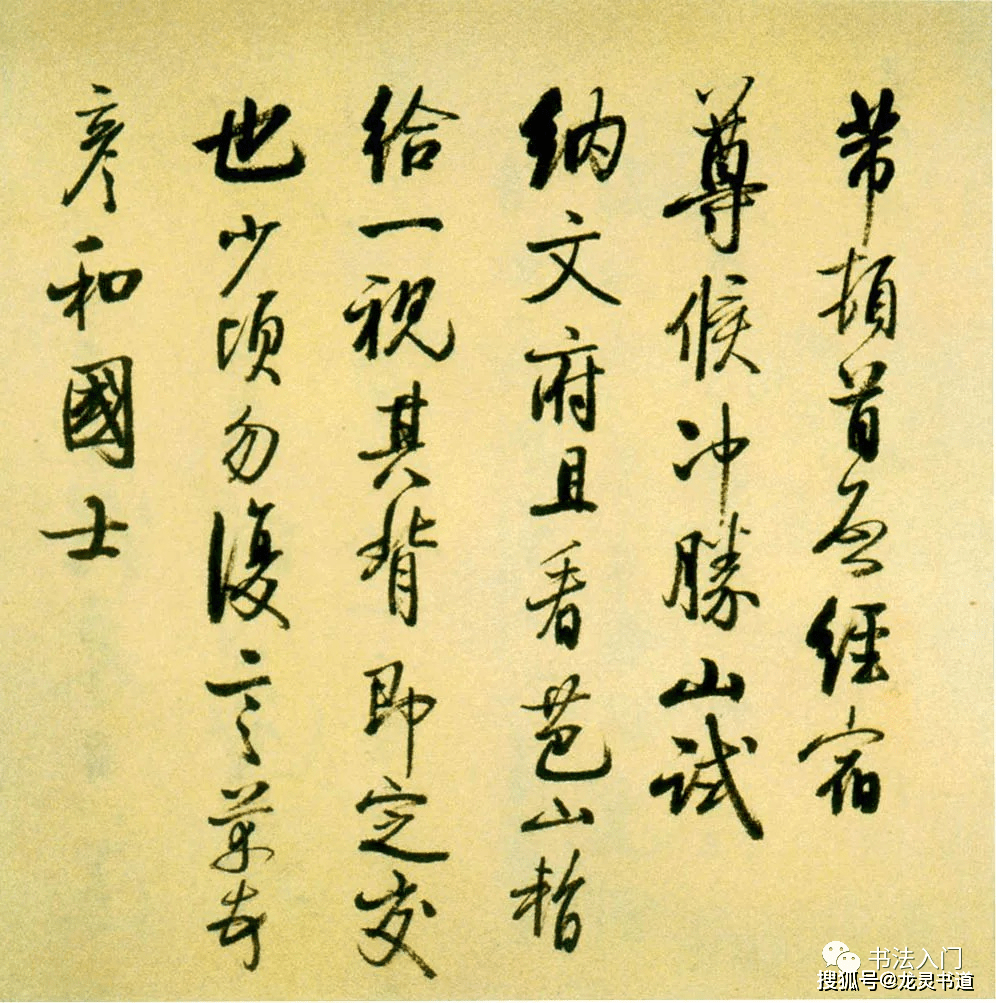 芾頓首再啓經宿
尊候冲勝山試
納文府且看芭山暫
給一視其背即定交
也少頃勿復言芾頓首
彦和國士
书法入门
搜狐号@龙灵书道